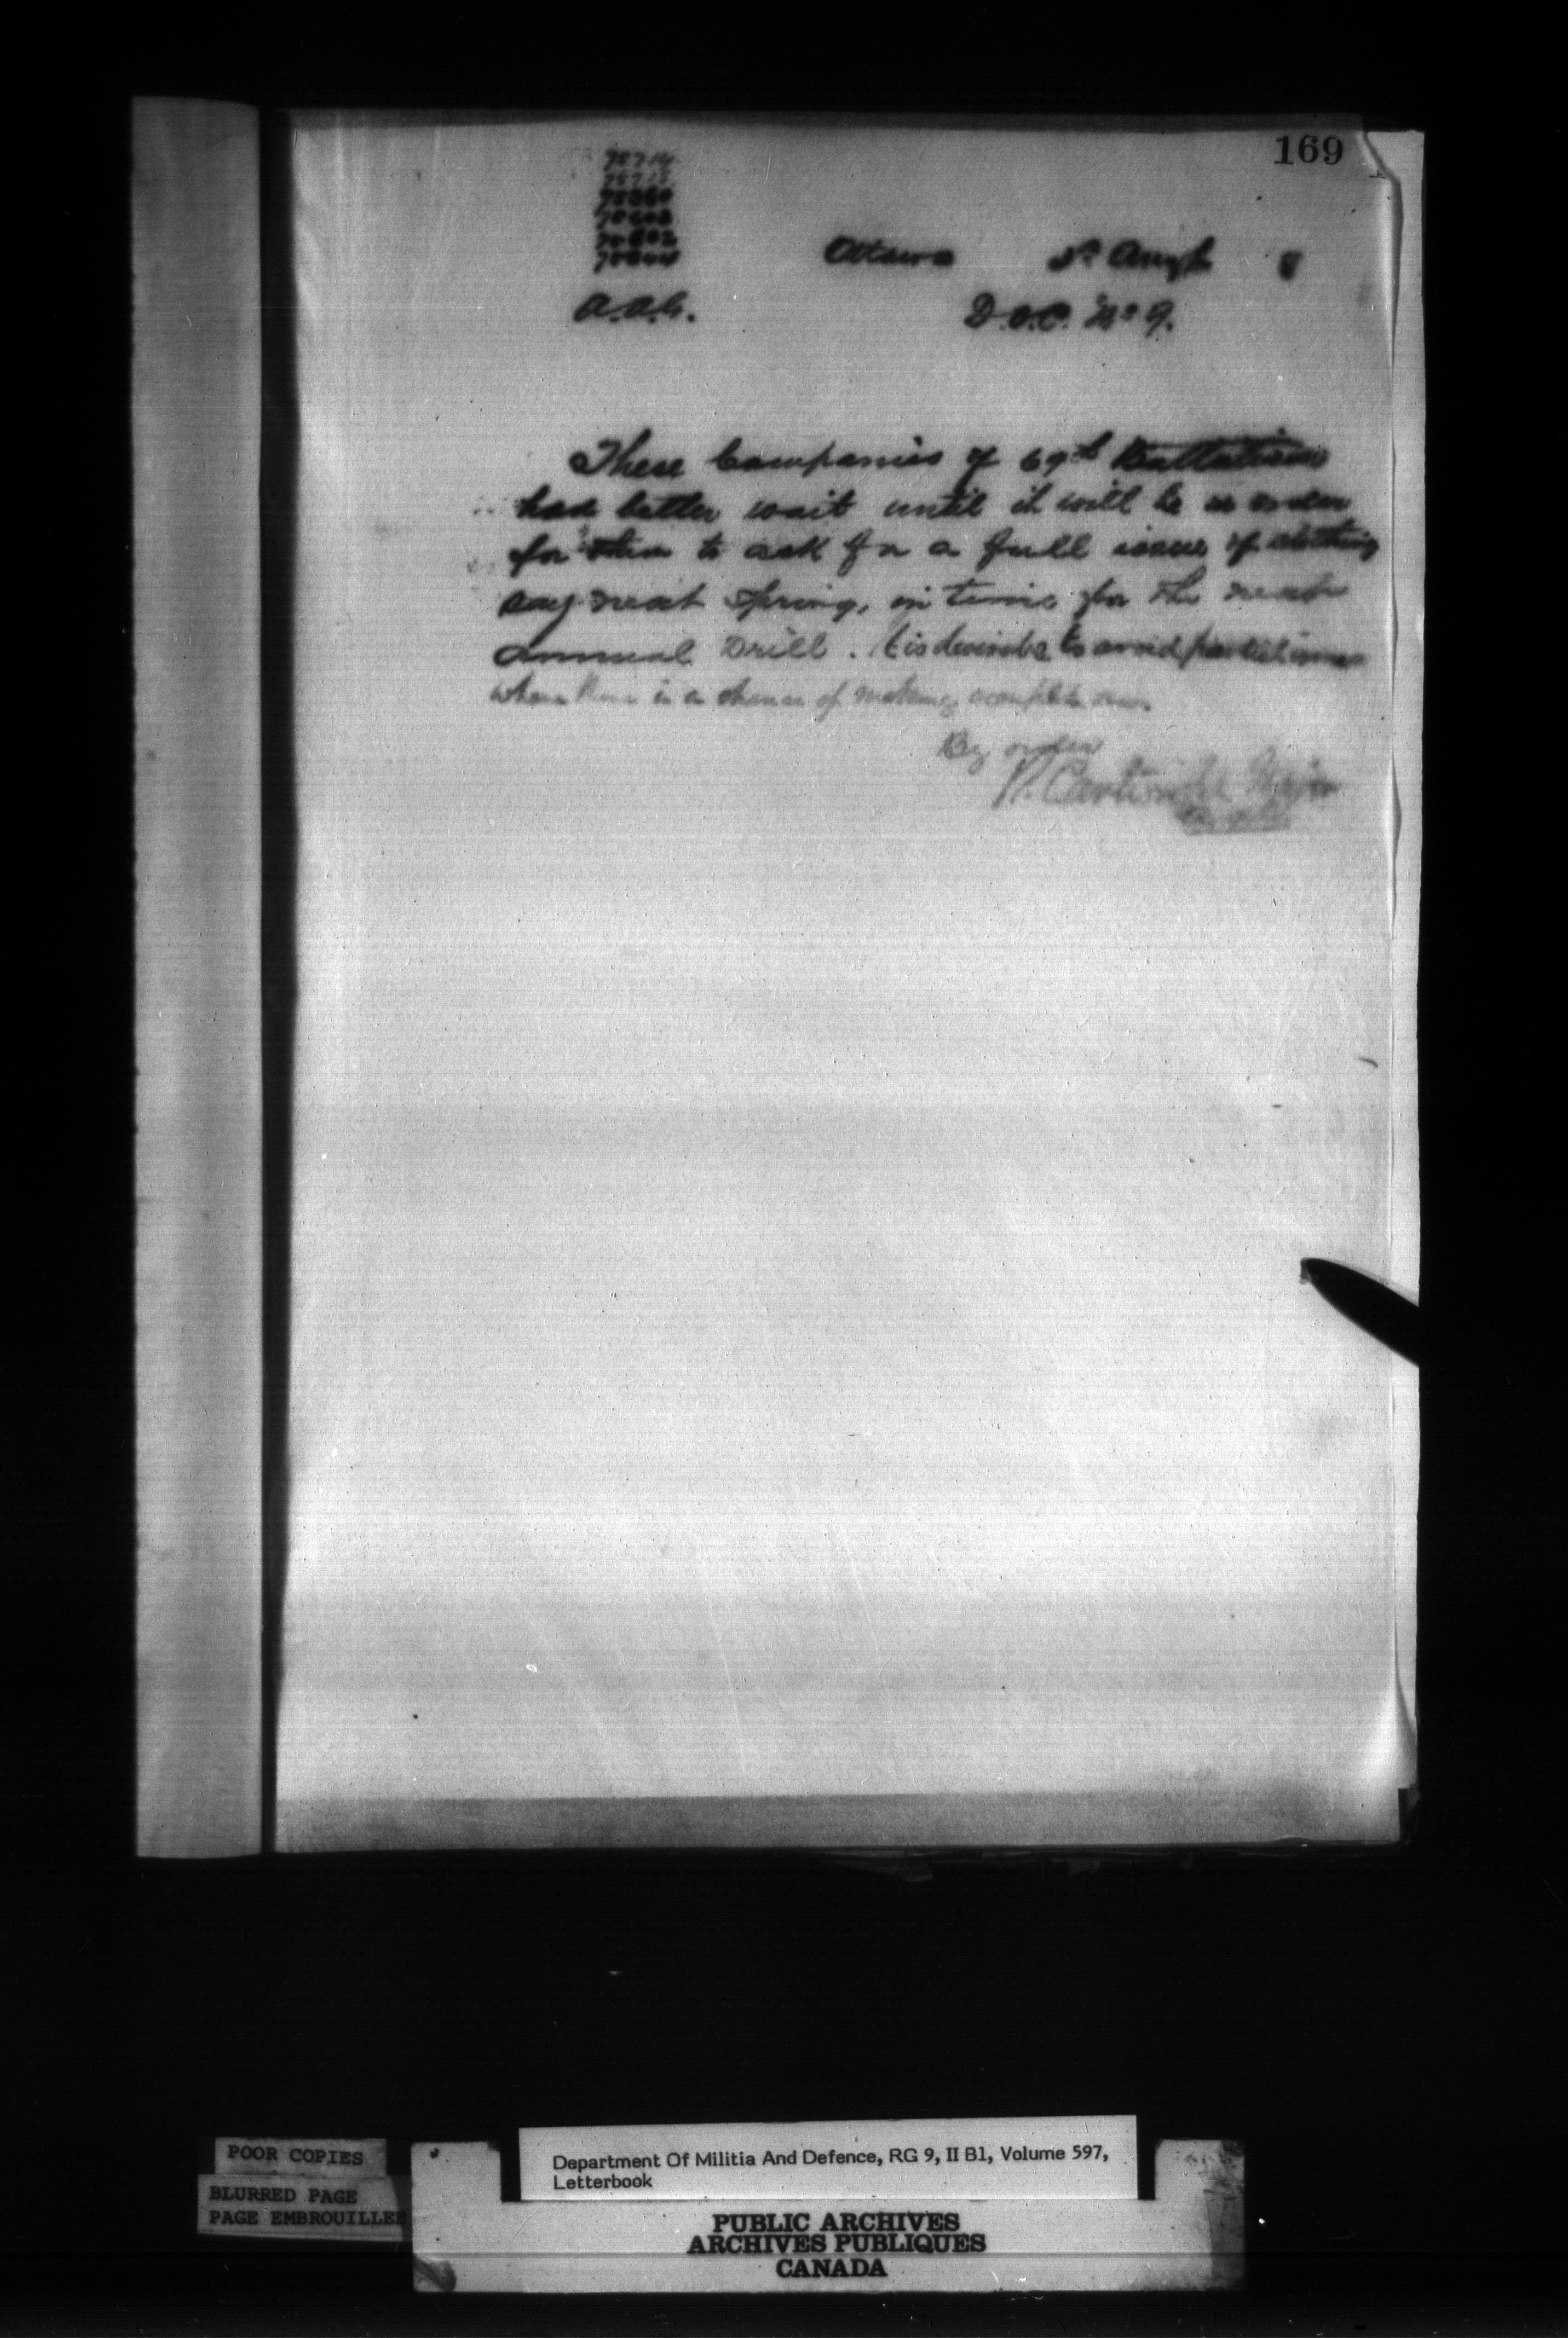 169
78714
Ottawa Augt
A.A.G. D.O.C. No 9.
These Companies of 69th Battalion
had better wait until it will be in order
for them to ask for a full issue of clothing
say next Spring, in time for the next
annual Drill. to avoid partial issues
where there is a chance of making complete
By order
Cartwright Major
POOR COPIES
BLURRED PAGE
PAGE EMBROUILLEE
Department Of Militia And Defence, RG 9, II B1, Volume 597,
Letterbook
PUBLIC ARCHIVES
ARCHIVES PUBLIQUES
CANADA